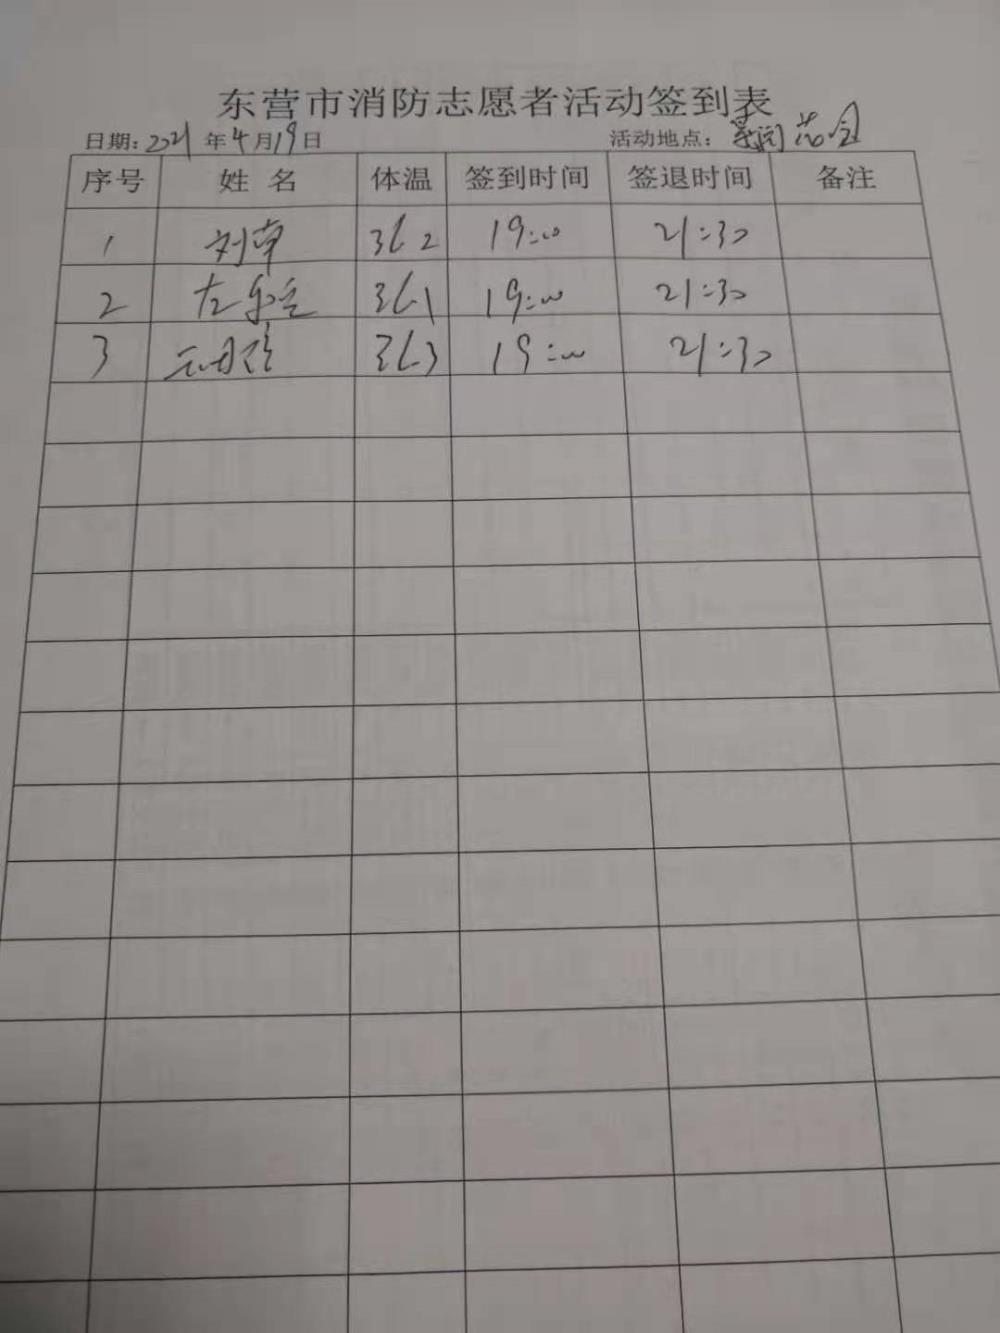 东营市消防志愿者活动签到表
日期：2021年4月19日 活动地点：
序号 姓名 体温 签到时间 签退时间 备注
1 刘 36.2 19:00 21:30
2 左 36.1 19:00 21:30
3 36.3 19:00 21:30